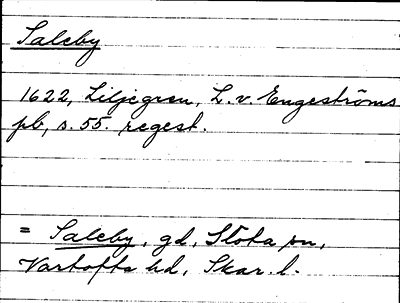 Saleby
1622, Liljegren, L. v. Engeströms
pb, s. 55. regest.
= Saleby, gd, Slöta sn,
Vartofta hd, Skar. l.